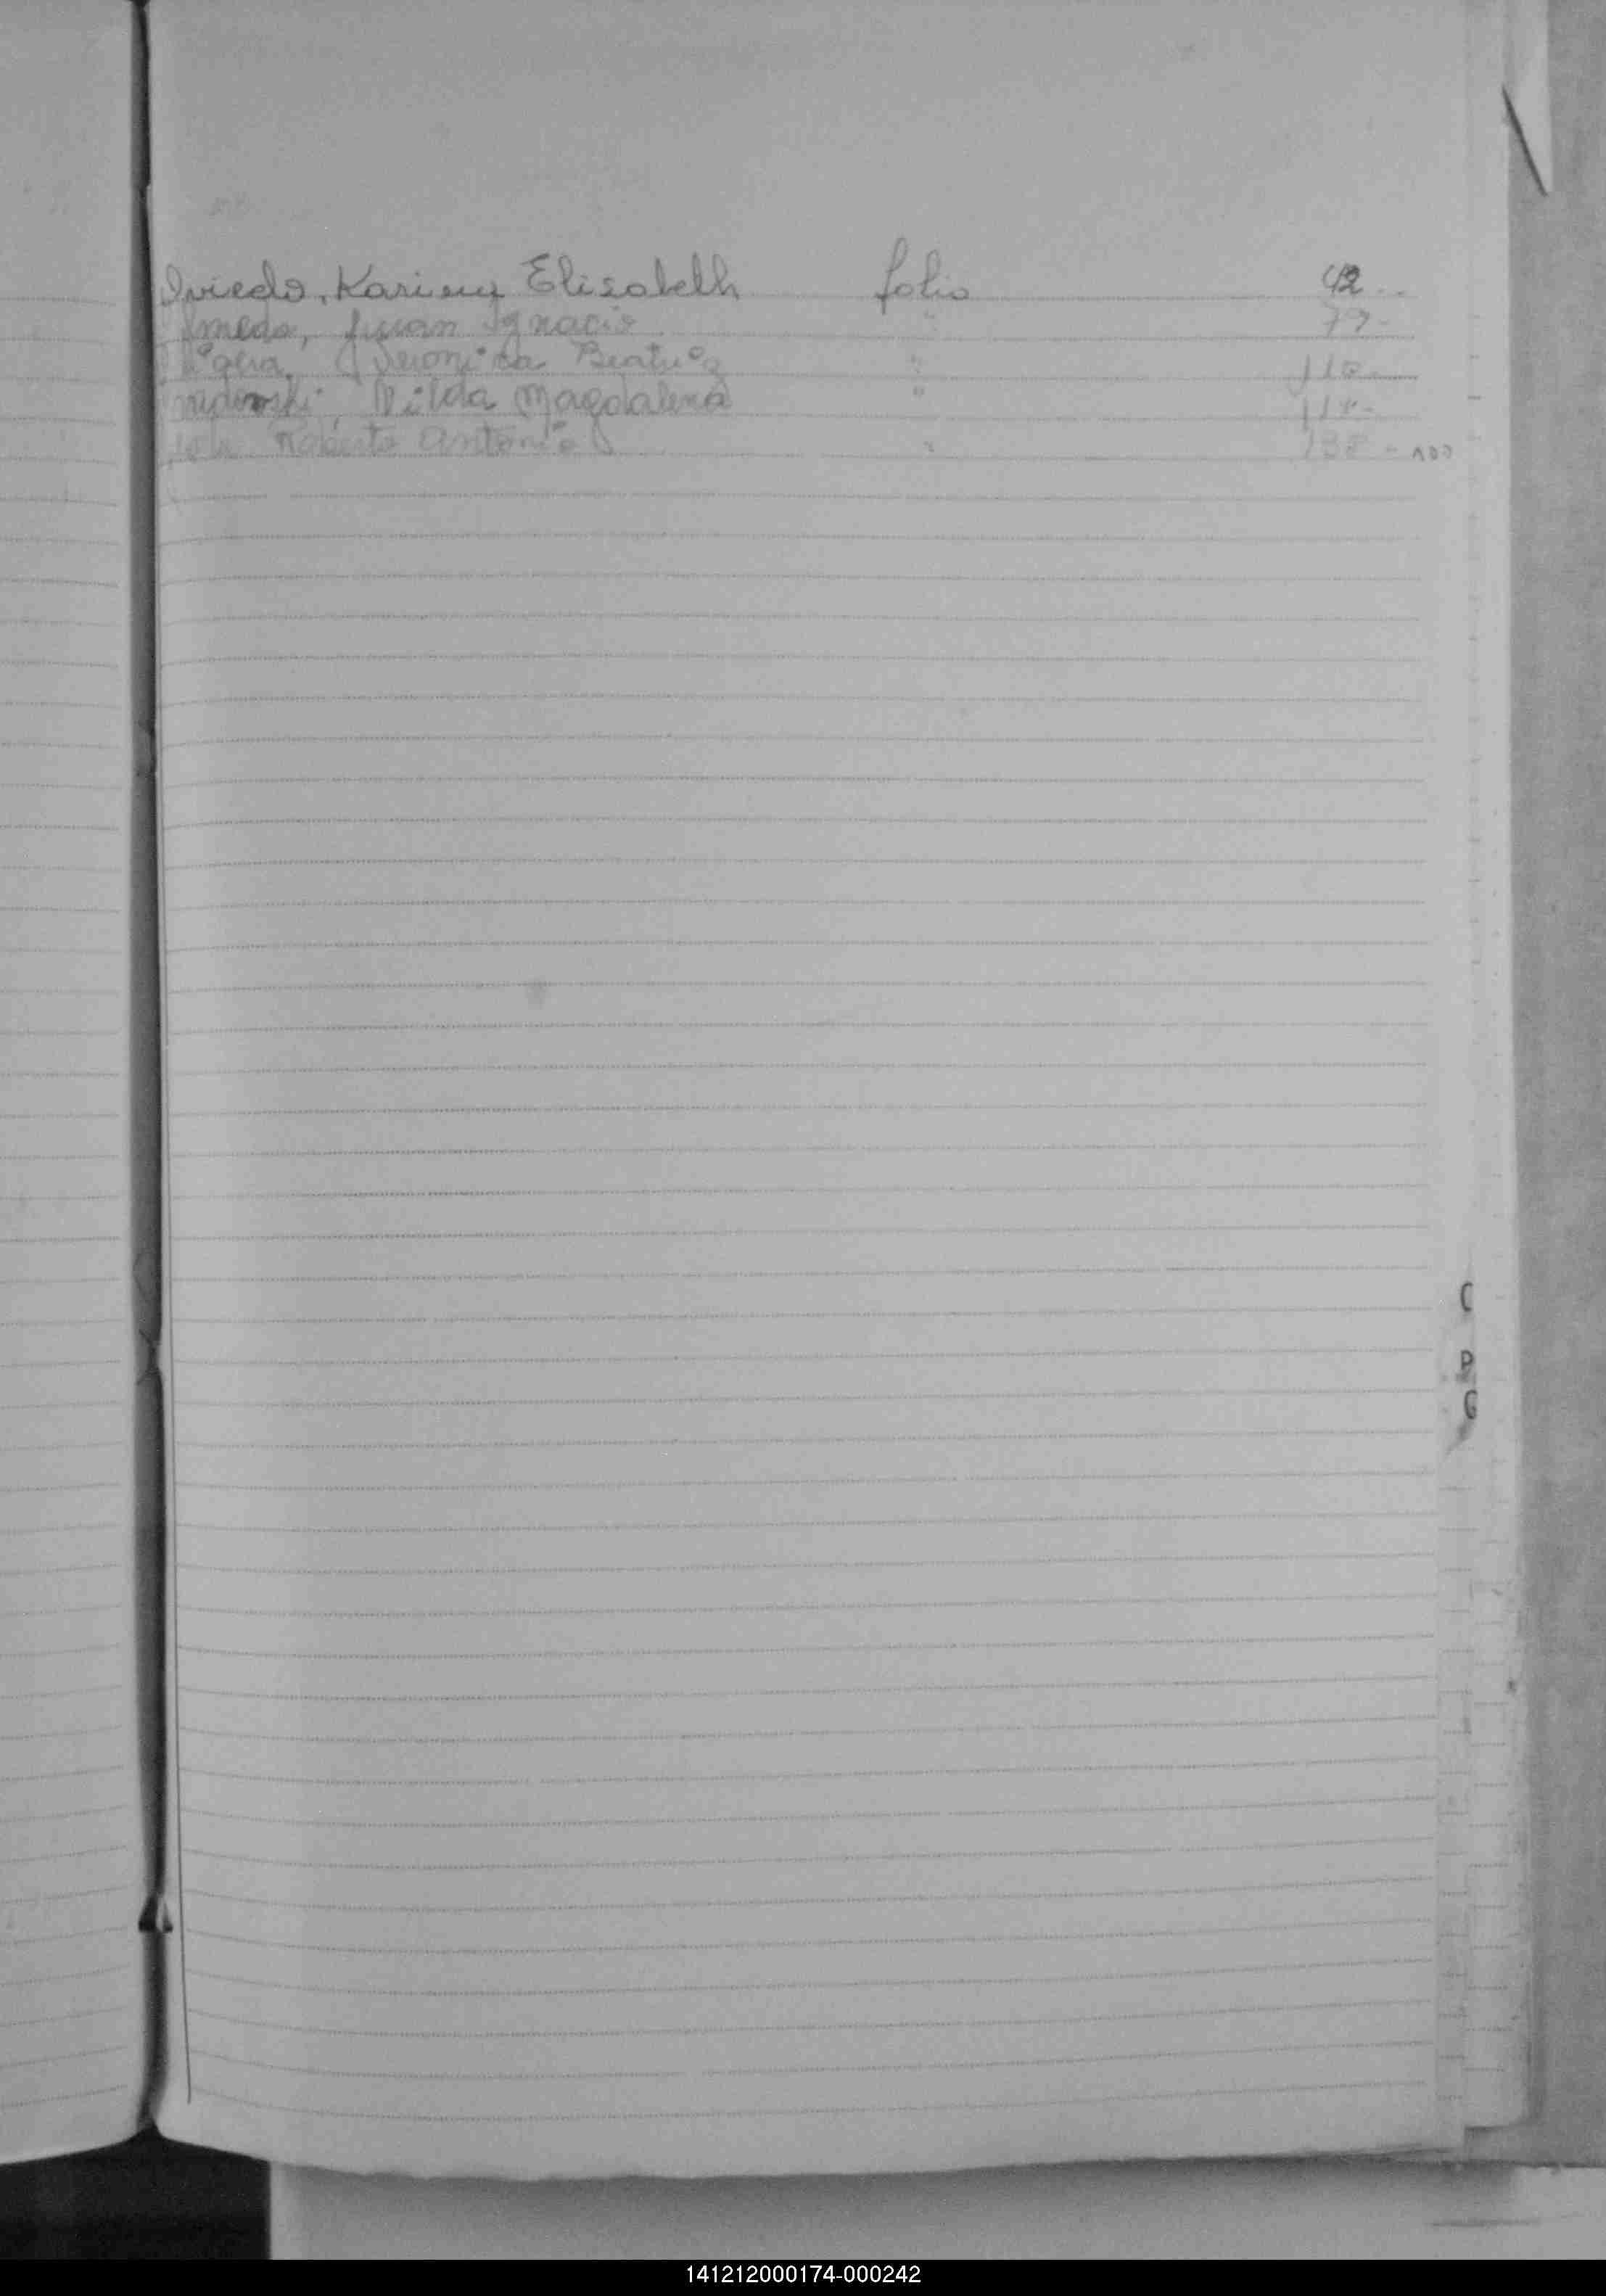 Oviedo, Karina Elisabeth folio 42
Juan Ignacio " 79-
Veronica Beatriz " 110-
Nilda Magdalena " 114-
Roberto Antonio " 138-
C
P
G
141212000174-000242